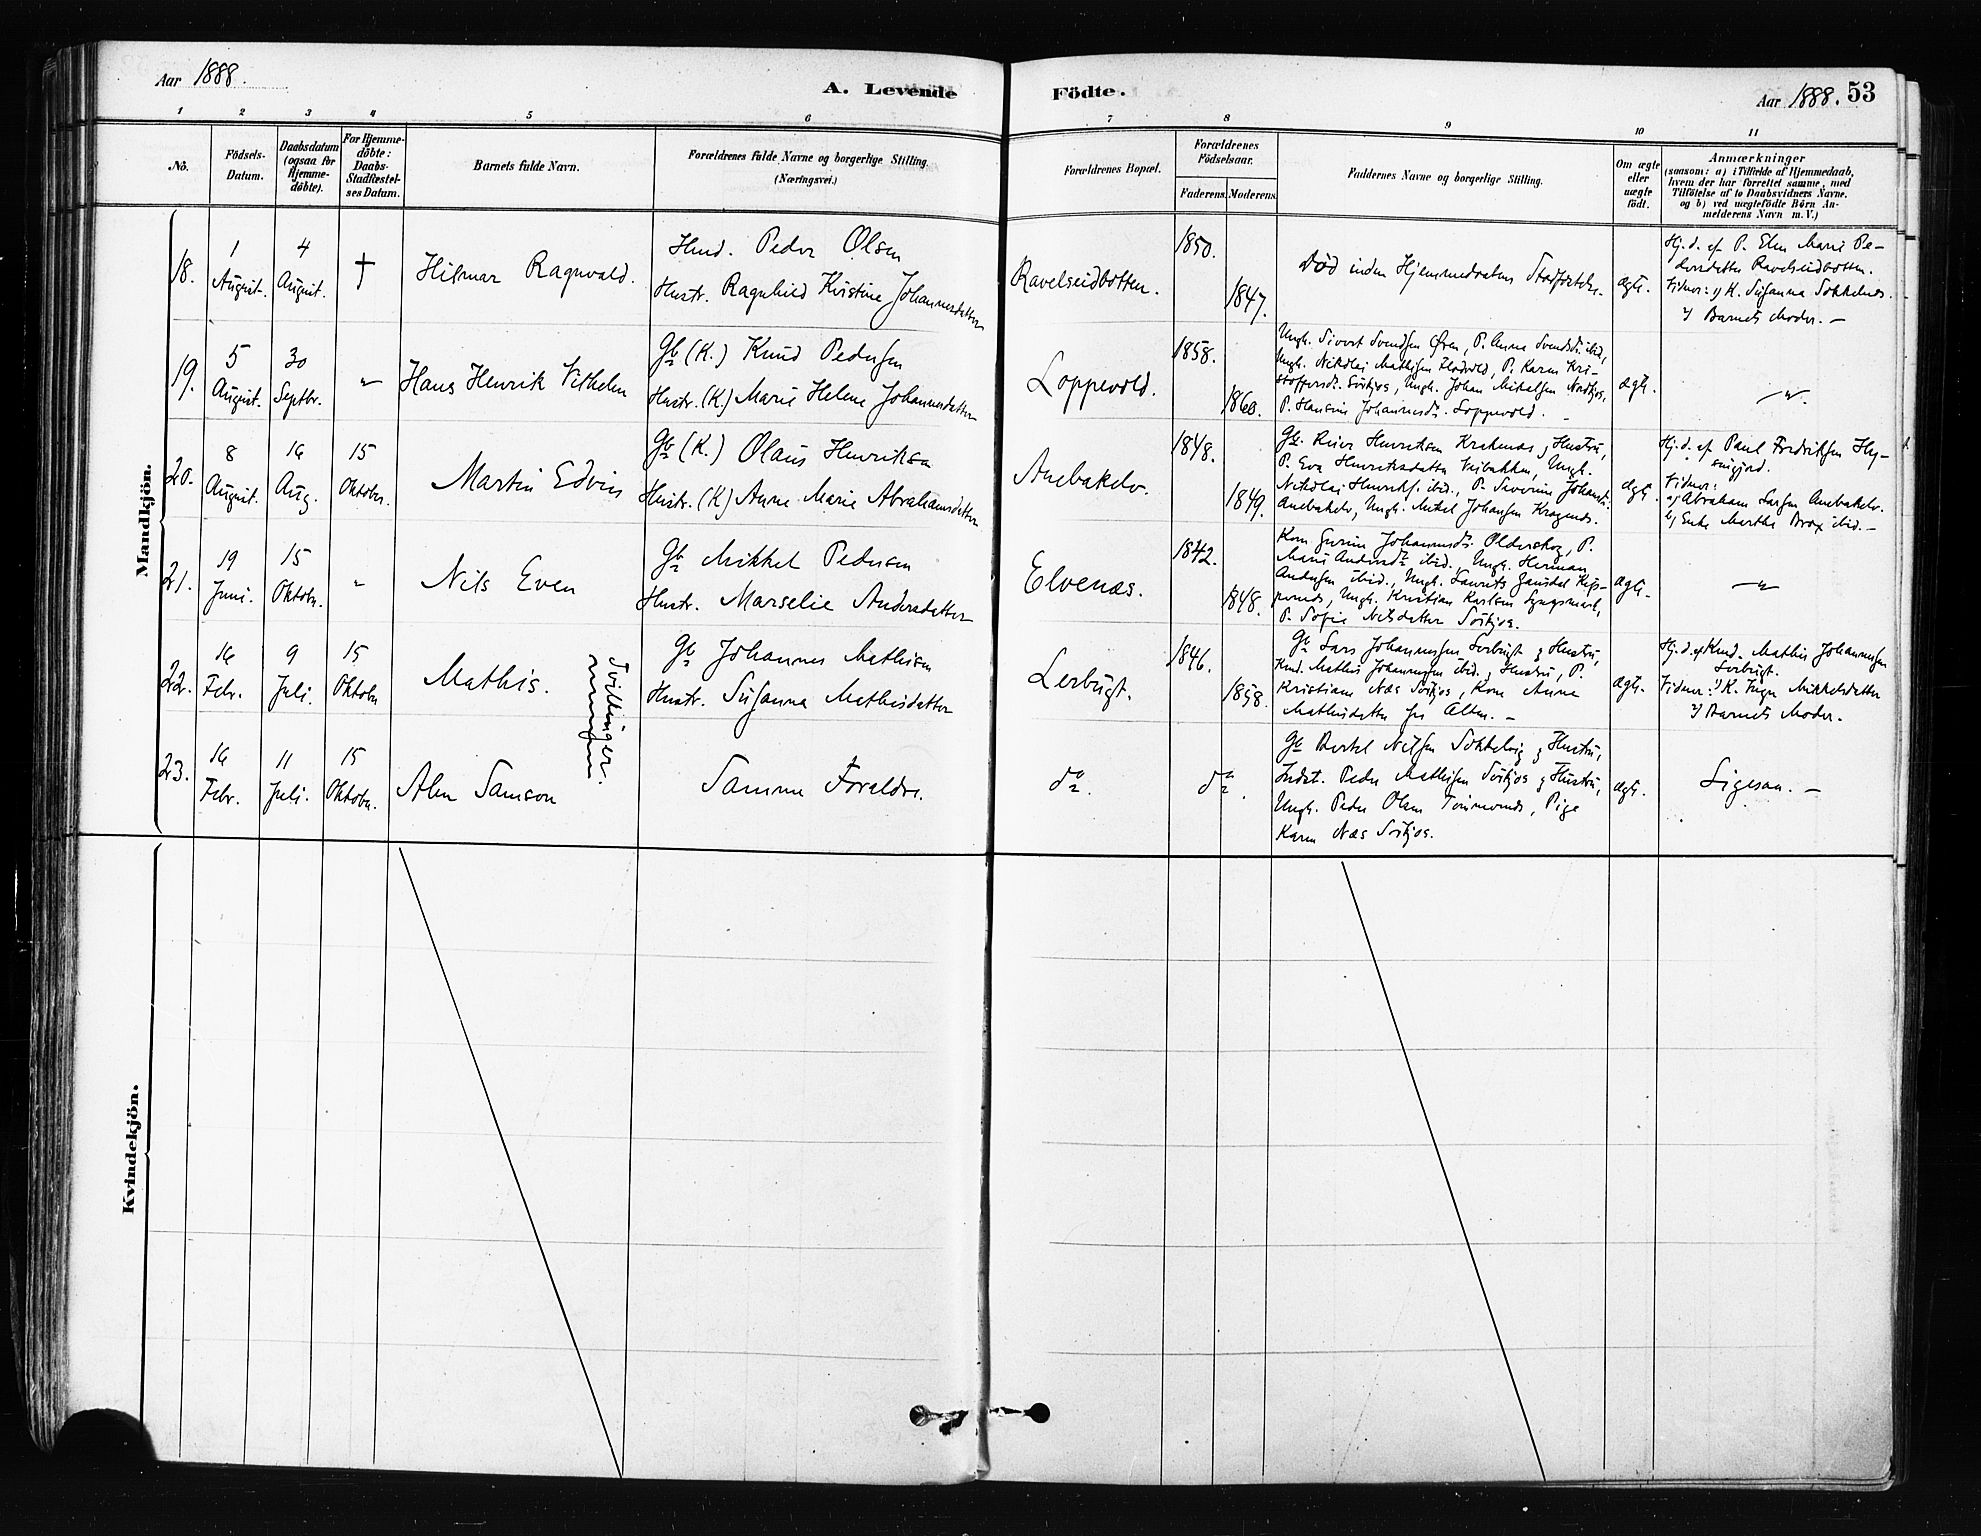 Aar 1888.
A. Levende Födte.
Aar 1888. 53
1 2 3 4 5 6 7 8 9 10 11
No.
Födsels-Datum.
Daabsdatum (ogsaa for Hjemme-döbte).
For Hjemme-döbte: Daabs-Stadfæstel-ses Datum.
Barnets fulde Navn.
Forældrenes fulde Navne og borgerlige Stilling (Næringsvei.)
Forældrenes Bopæl.
Forældrenes Födselsaar.
Faderens. Moderens.
Faddernes Navne og borgerlige Stilling.
Om ægte eller uægte födt.
Anmærkninger
(saasom: a) i Tilfælde af Hjemmedaab,
hvem der har forrettet samme, med
Tilföielse af to Daabsvidners Navne.
og b) ved uægtefödte Börn An-
melderens Navn m. V.)
Mandkjön.
18.
1 August.
4 August.
†
Hilmar Ragnvald.
Husd. Peder Olsen
Hustr. Ragnhild Kristine Johannesdatter
Ravelseidbotten.
1850.
1847.
Död inden Hjemmedaabens Stadfæstelse.
ægte.
Hj. d. af P. Elen Marie Pe-
dersdatter Ravelseidbotten.
Vidner: 1) K. Susanna Sokkelnes.
2) Barnets Moder. —
19.
5 August.
30 Septbr.
"
Hans Henrik Vilhelm
Gb (K.) Knud Pedersen
Hustr. (K.) Marie Helene Johannesdatter
Loppevold.
1858.
1860.
Ungk. Sivert Svendsen Øren, P. Anna Svendsd. ibid,
Ungk. Nikolai Mathisen, P. Karen Kri-
stoffersd. Sörkjos, Ungk. Johan Mikalsen Nordkjos,
P. Hansine Johannesd. Loppevold. —
ægte.
— " —
20.
8 August.
16 Aug.
15 Oktober.
Martin Edvin
Gb (K.) Olaus Henriksen
Hustr. (K) Anne Marie Abrahamsdatter
Anebakelv.
1848.
1849.
Gb. Reier Henriksen Krakenæs & Hustru,
P. Eva Henriksdatter, Ungk.
Nikolai Henriks. ibid., P. Severine Johansd.
Anebakelv, Ungk. Mikel Johansen
ægte.
Hj. d. af Paul Fredriksen
Vidner:
a) Abraham Larsen Anebakelv.
b) Enke Marthe Brox ibid. —
21.
19 Juni.
15 Oktobr.
"
Nils Even
Gb Mikkel Pedersen
Hustr. Marselie Andersdatter
Elvenæs.
1842.
1848.
Kone Gurine Johannesd. Olderskog, P.
Marie Andersd. ibid., Ungk. Herman
Andersen ibid., Ungk. Laurits
Ungk. Kristian Karlsen
P. Sofie Nilsdatter Sörkjos.
ægte.
— " —
22.
16 Febr.
9 Juli.
15 Oktobr
Mathis.
Tvillinger
Gb Johannes Mathisen
Hustr. Susanna Mathisdatter
Lerbugt.
1846.
1858.
Gb Lars Johannessen Lerbugt & Hustru,
Husd. Mathis Johannessen ibid. & Hustru, P.
Kristiane Næs Sörkjos, Kone Anne
Mathisdatter fra Alten. —
ægte.
Hj. d. af Husd. Mathis Johannessen
Lerbugt.
Vidner: 1) K. Inger Mikkelsdatter
2) Barnets Moder. —
23.
16 Febr.
11 Juli.
15 Oktobr.
Alm Samson
Samme Forældre.
do.
do.
Gb Bertel Nilsen & Hustru,
Indst. Peder Mathisen Sörkjos & Hustru,
Ungk. Peder Olsen, Pige
Karen Næs Sörkjos.
ægte.
Ligesaa. —
Kvindekjön.